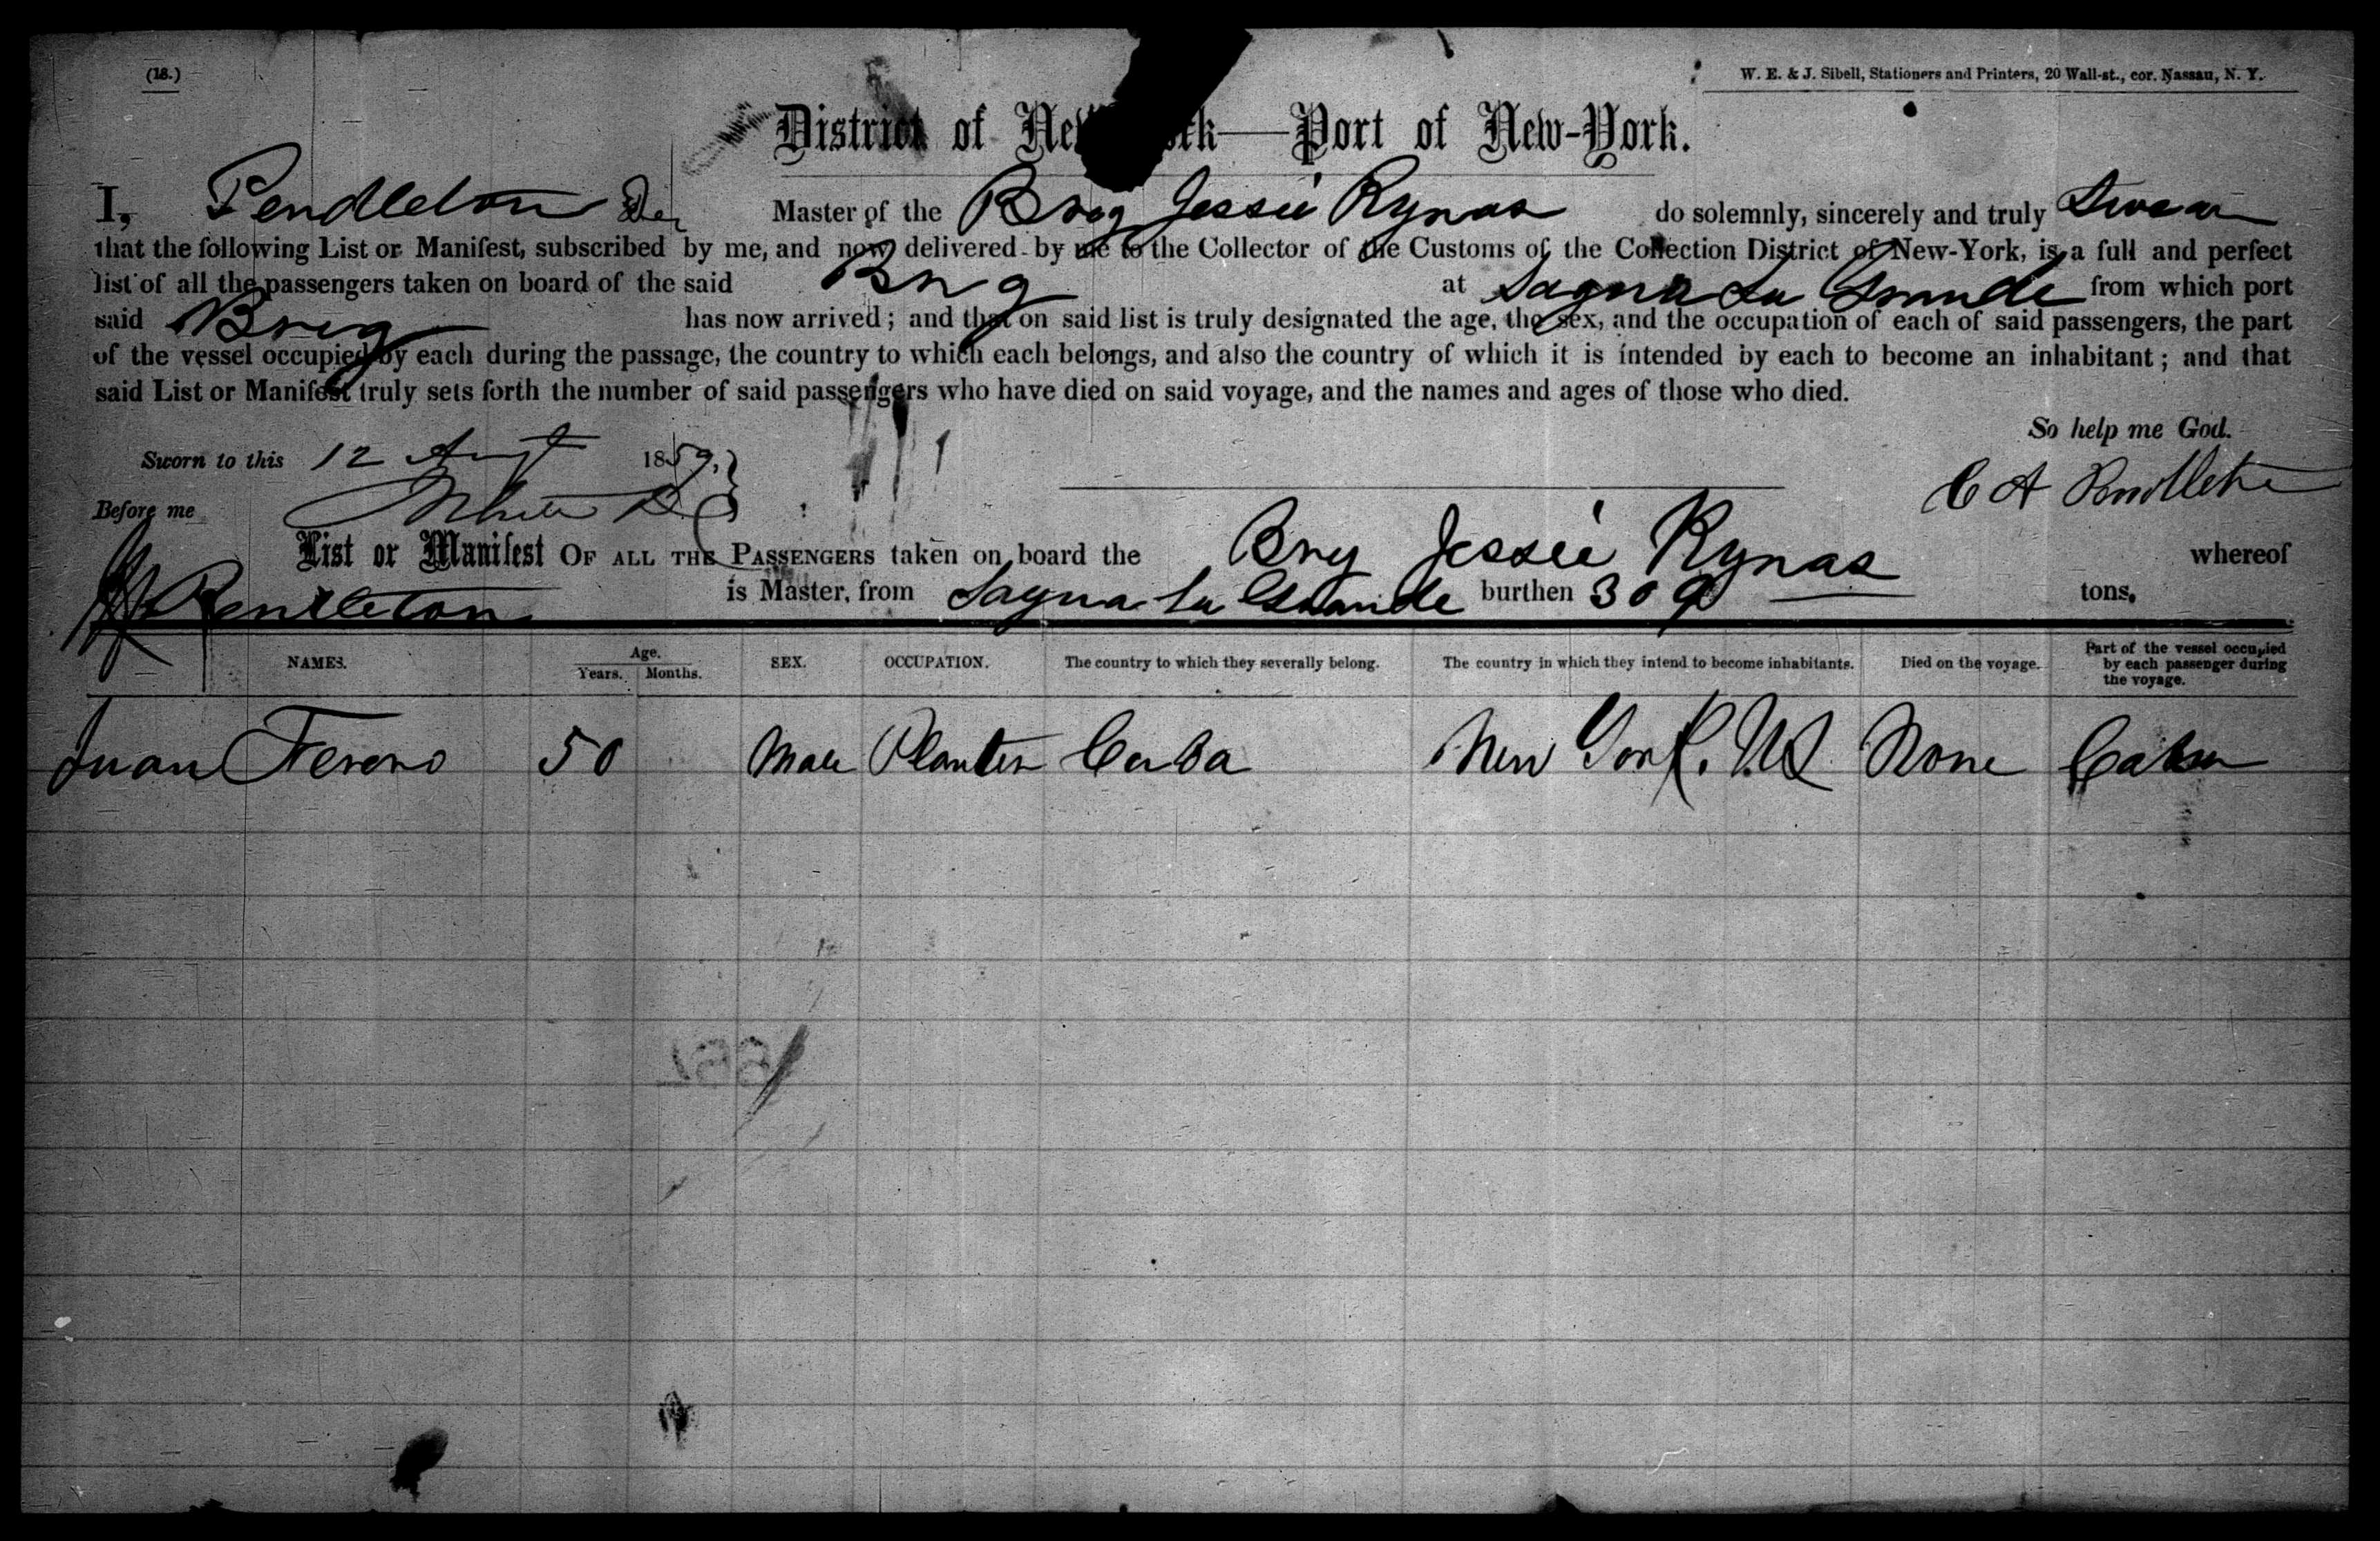 (18.)
W. E. & J. Sibell, Stationers and Printers, 20 Wall-st., cor. Nassau, N. Y.
District of New York—Port of New-York.
I, Pendleton Master of the Brig Jessie Rynas do solemnly, sincerely and truly Swear
that the following List or Manifest, subscribed by me, and now delivered by me to the Collector of the Customs of the Collection District of New-York, is a full and perfect
list of all the passengers taken on board of the said Brig at Sagua La Grande from which port
said Brig has now arrived; and that on said list is truly designated the age, the sex, and the occupation of each of said passengers, the part
of the vessel occupied by each during the passage, the country to which each belongs, and also the country of which it is intended by each to become an inhabitant; and that
said List or Manifest truly sets forth the number of said passengers who have died on said voyage, and the names and ages of those who died.
So help me God.
Sworn to this 12 Augt 1859,
C A Pendleton
Before me
List or Manifest OF ALL THE PASSENGERS taken on board the Brig Jessie Rynas whereof
Pendleton is Master, from Sagua La Grande burthen 309 tons,
NAMES. Age. Years. Months. SEX. OCCUPATION. The country to which they severally belong. The country in which they intend to become inhabitants. Died on the voyage. Part of the vessel occupied by each passenger during the voyage.
Juan Ferero 50 Male Planter Cuba New York. US None Cabin